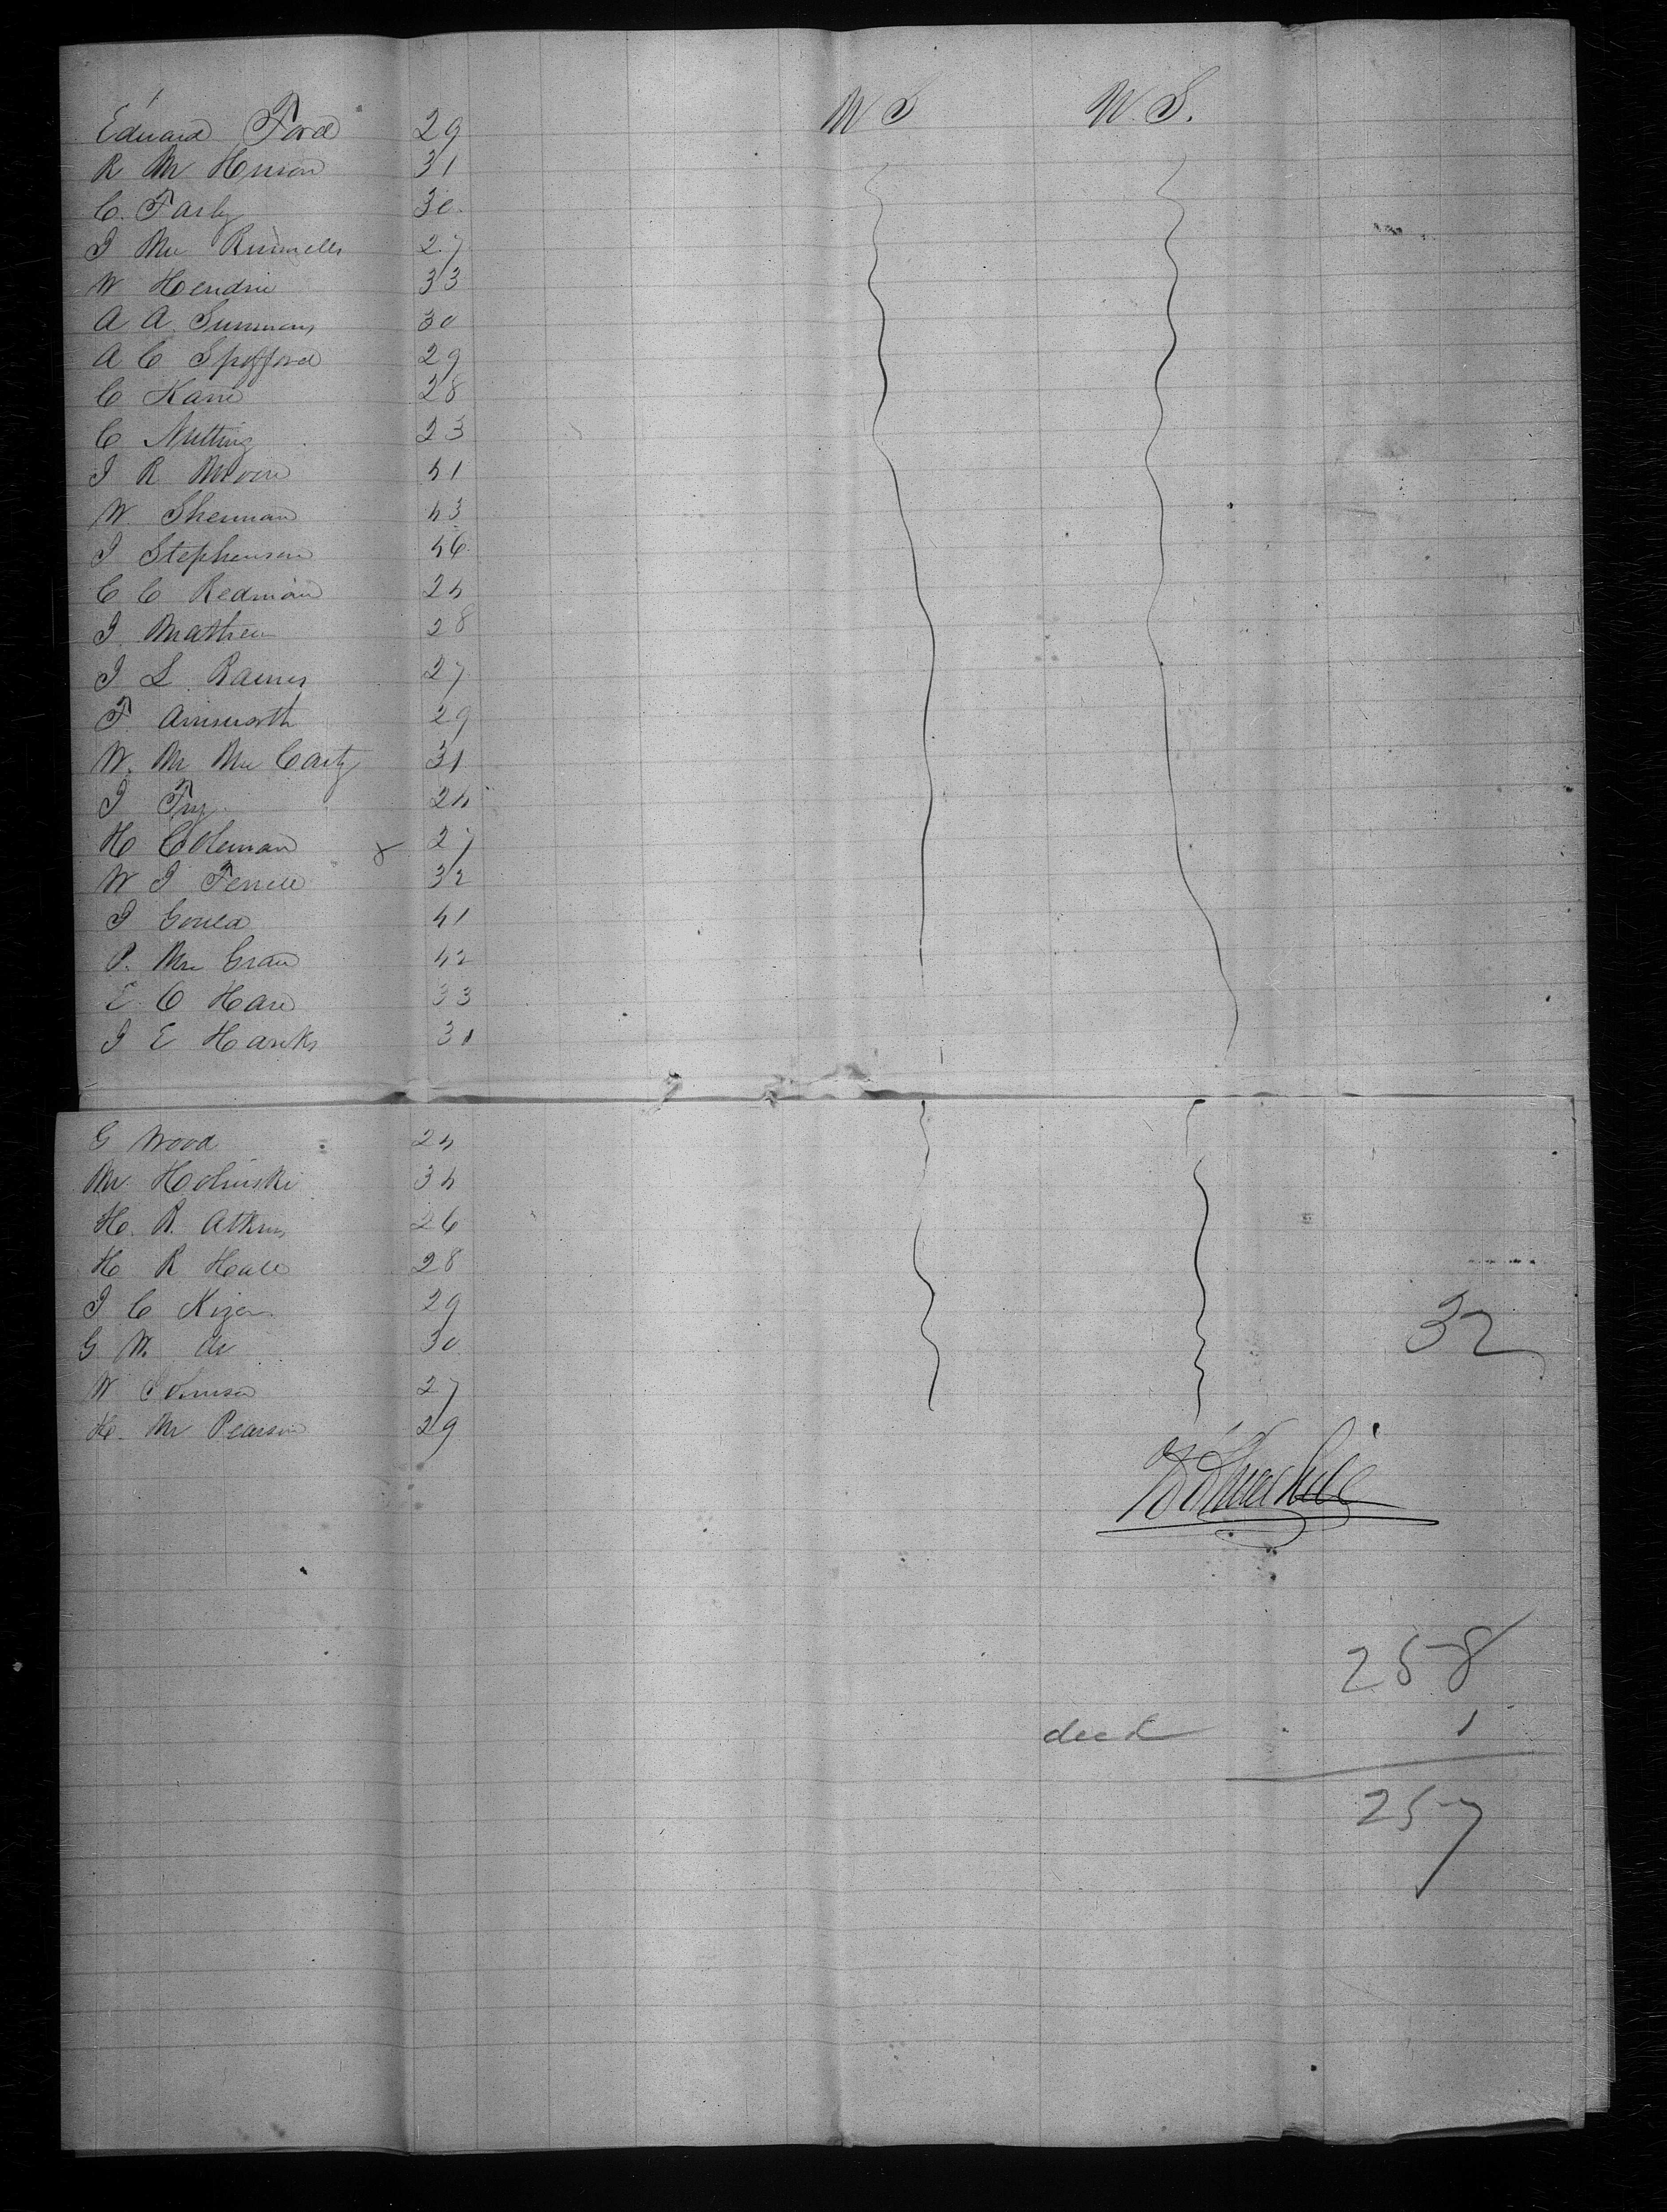 Edward Ford 29 U S U. S.
R M Henson 31
C. Farly 30.
J Mc Runnells 27
W Hendrie 33
A A Simmons 30
A C Spofford 29
C Kane 28
C Nutting 23
J R Moore 41
W. Sherman 43
J Stephenson 46
C C Redman 24
J Mathew 28
J L Raines 27
F. Ainsworth 29
W. M Mc Carty 31
J Fry 24
H Coleman x 27
W J Ferrell 32
J Gould 41
P. Mc Graw 42
E C Hare 33
J E Hanks 31
G Wood 24
M. Holinski 34
H. R. Atkins 26
H R Hale 28
J C Kizer 29
G W. do 30
32
W Johnson 27
H. M Pearson 29
258
ded 1
257